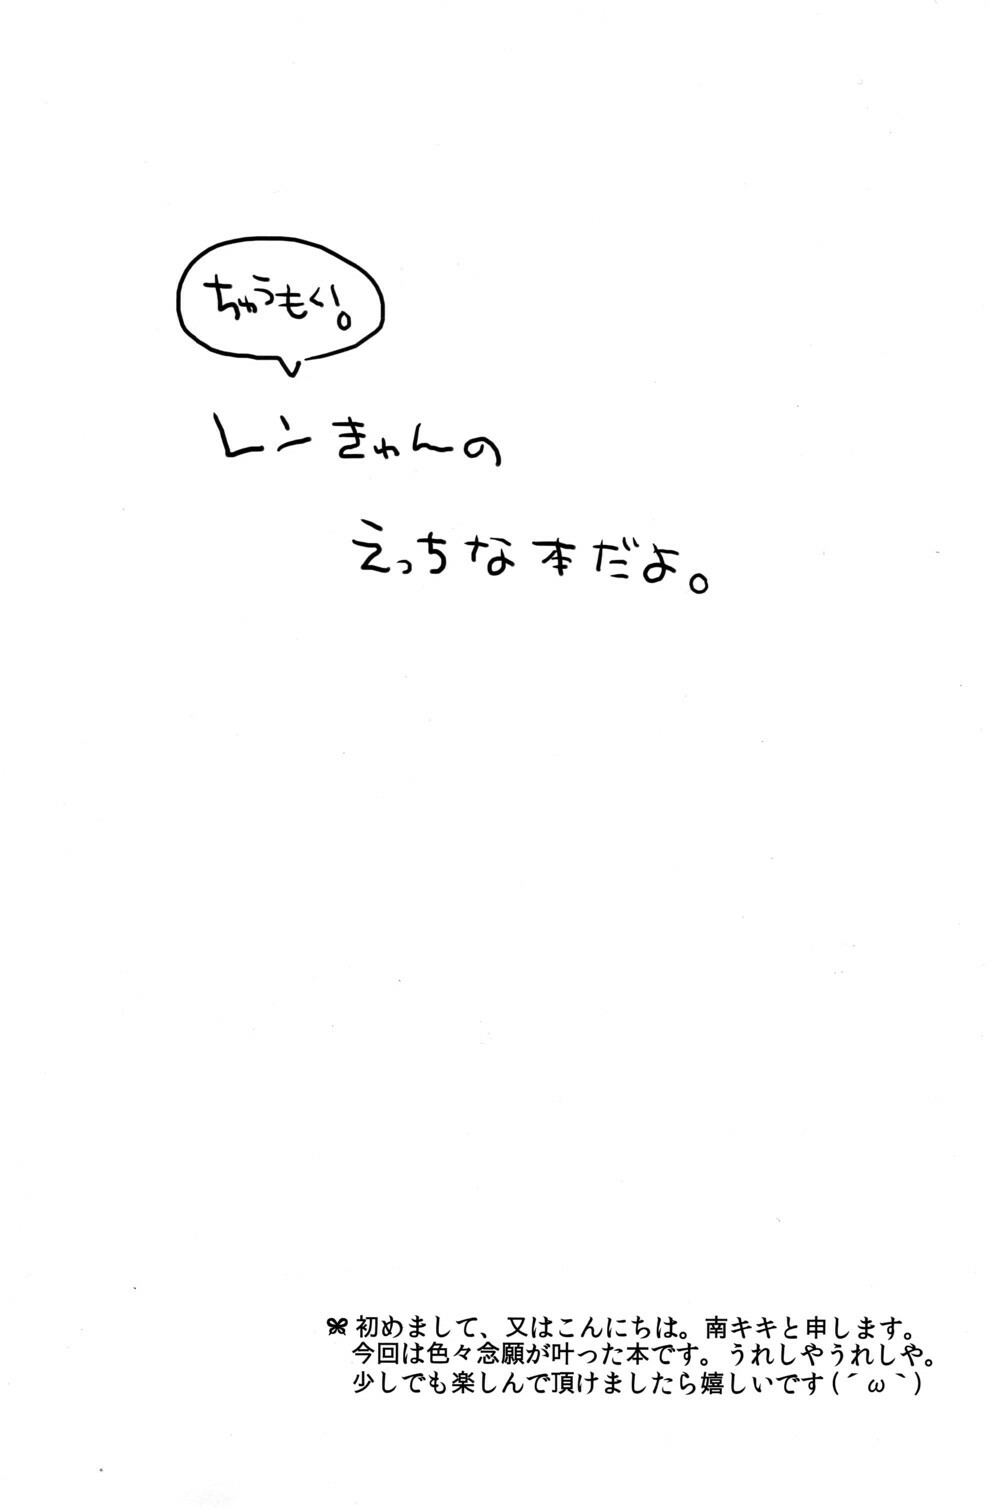 ちゅうもく!。
レンきゅんの
えっちな本だよ。
初めまして、又はこんにちは。南キキと申します。
今回は色々念願が叶った本です。うれしやうれしや。
少しでも楽しんで頂けましたら嬉しいです(´ω｀)